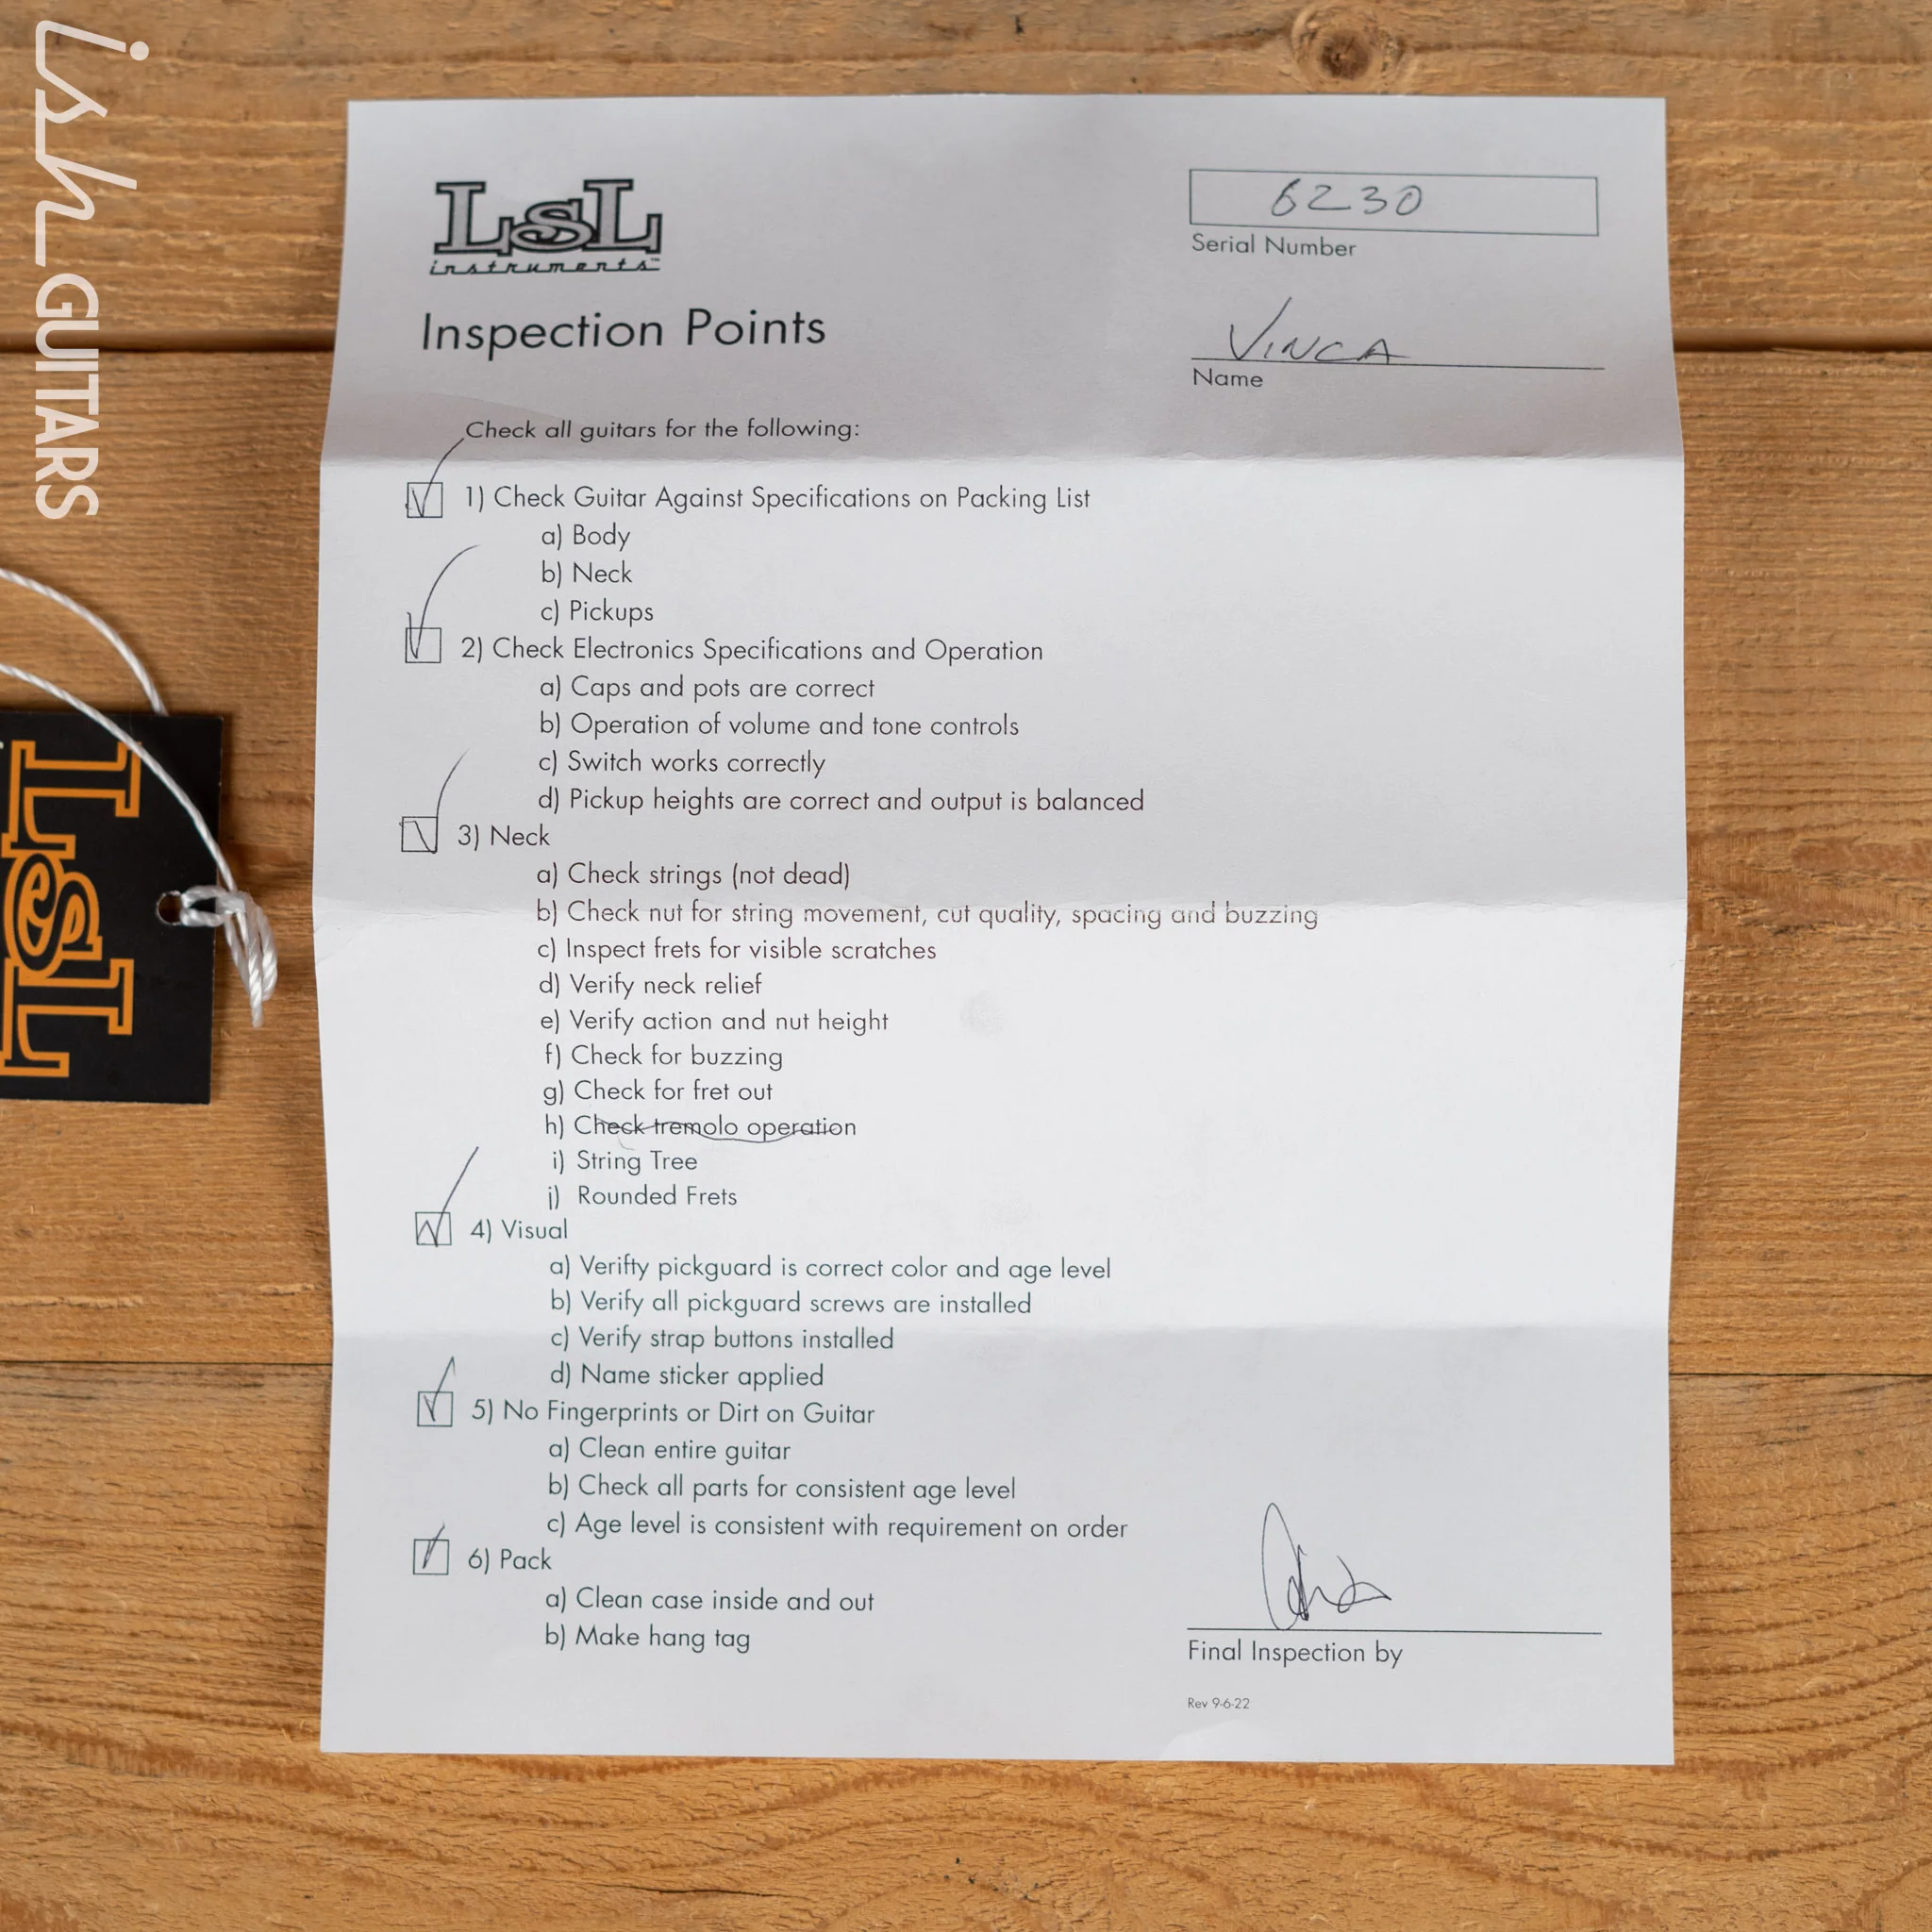 ish GUITARS
LsL
instruments™
Inspection Points
6230
Serial Number
VINCA
Name
Check all guitars for the following:
1) Check Guitar Against Specifications on Packing List
a) Body
b) Neck
c) Pickups
2) Check Electronics Specifications and Operation
a) Caps and pots are correct
b) Operation of volume and tone controls
c) Switch works correctly
d) Pickup heights are correct and output is balanced
3) Neck
a) Check strings (not dead)
b) Check nut for string movement, cut quality, spacing and buzzing
c) Inspect frets for visible scratches
d) Verify neck relief
e) Verify action and nut height
f) Check for buzzing
g) Check for fret out
h) Check tremolo operation
i) String Tree
j) Rounded Frets
4) Visual
a) Verifty pickguard is correct color and age level
b) Verify all pickguard screws are installed
c) Verify strap buttons installed
d) Name sticker applied
5) No Fingerprints or Dirt on Guitar
a) Clean entire guitar
b) Check all parts for consistent age level
c) Age level is consistent with requirement on order
6) Pack
a) Clean case inside and out
b) Make hang tag
Final Inspection by
Rev 9-6-22
LsL